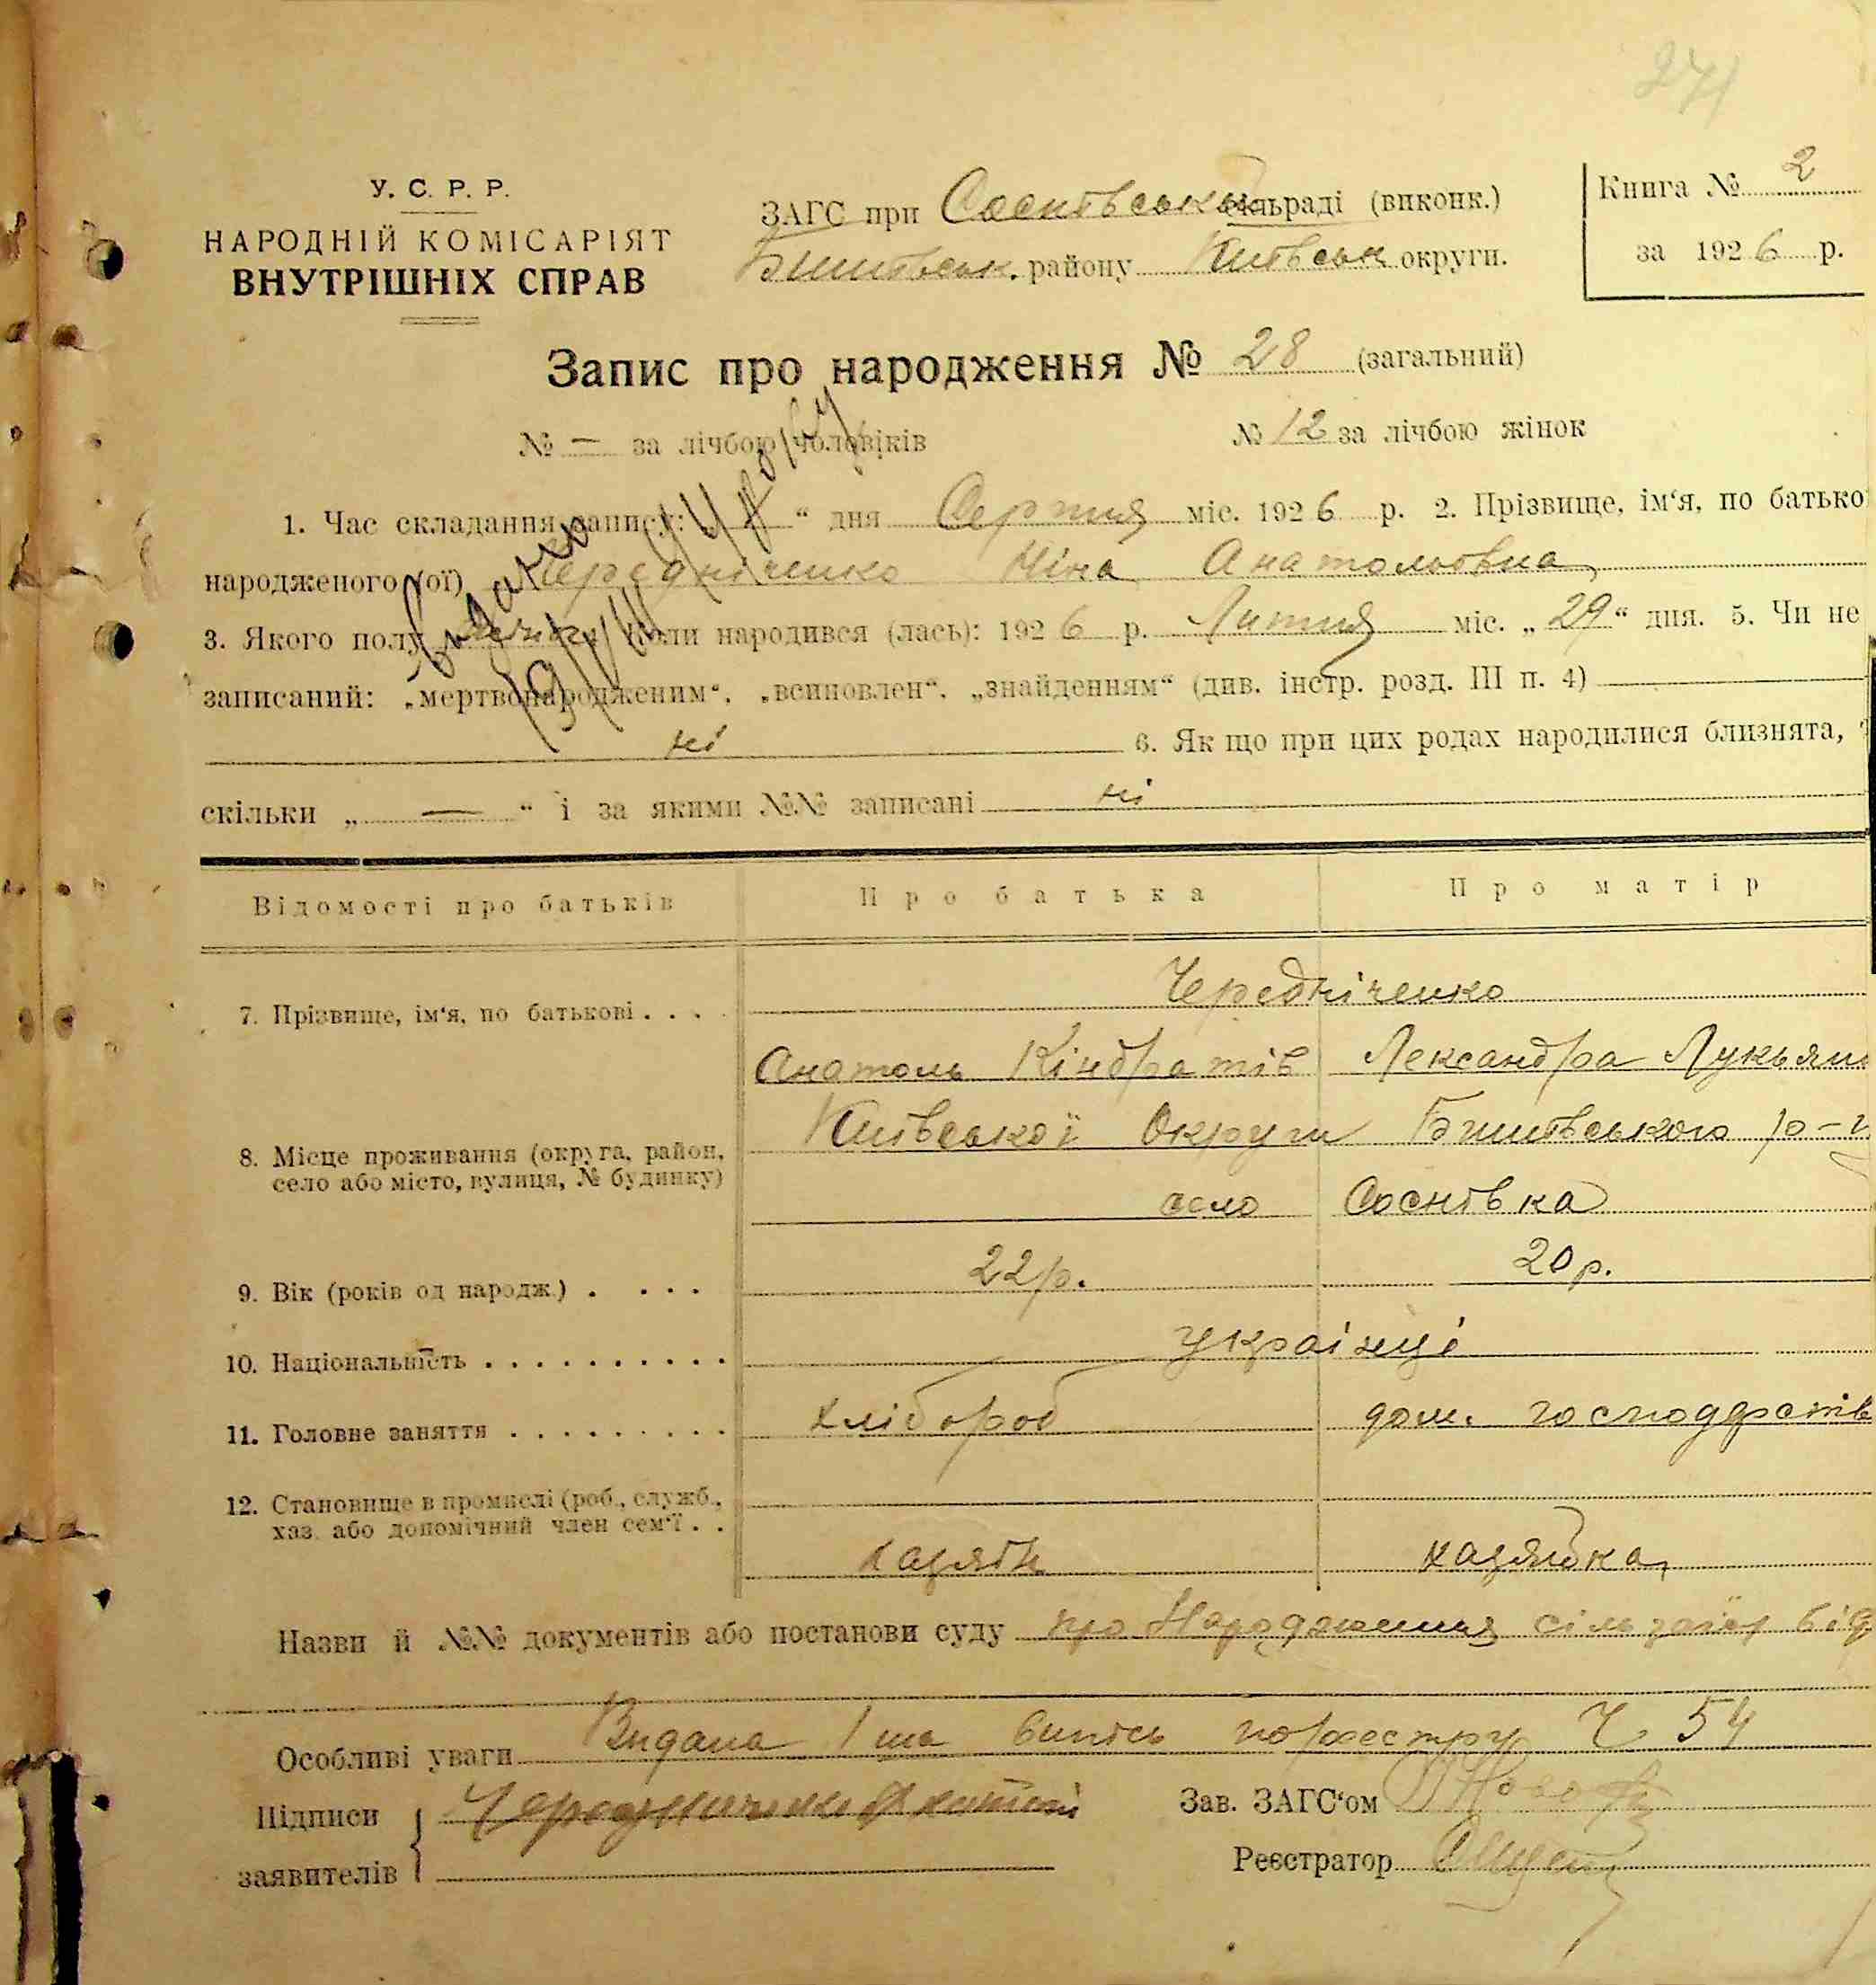 271
У. С. Р. Р.
НАРОДНІЙ КОМІСАРІЯТ
ВНУТРІШНІХ СПРАВ
ЗАГС при Соснівській сільраді (виконк.)
Бишівськ. району Київськ округи.
Книга № 2
за 1926 р.
Запис про народження № 28 (загальний)
№ — за лічбою чоловіків № 12 за лічбою жінок
1. Час складання запису: „ “ дня Серпня міс. 1926 р. 2. Прізвище, ім‘я, по батько
народженого (ої) Чередніченко Ніна Анатольовна
3. Якого полу коли народився (лась): 1926 р. Липня міс. „29“ дня. 5. Чи не
записаний: „мертвонародженим“, „всиновлен“, „знайденням“ (див. інстр. розд. III п. 4)
ні 6. Як що при цих родах народилися близнята,
скільки „ — “ і за якими №№ записані ні
Відомості про батьків Про батька Про матір
7. Прізвище, ім‘я, по батькові . . . . Чередніченко
Анатоль Кіндратів Лександра Лукьян
8. Місце проживання (округа, район, село або місто, вулиця, № будинку) Київської Округи Бишівського р-
село Соснівка
9. Вік (років од народж.) . . . . 22 р. 20 р.
10. Національність . . . . . . . . . . українці
11. Головне заняття . . . . . . . . . хлібороб дом. господарств
12. Становище в промислі (роб., служб.,
хаз. або допомічний член сем‘ї . . хазяїн хазяйка
Назви й №№ документів або постанови суду про Народження
Особливі уваги Видана 1 ша випісь по реєстру Ч 54
Підписи
заявителів
Зав. ЗАГС‘ом
Реєстратор